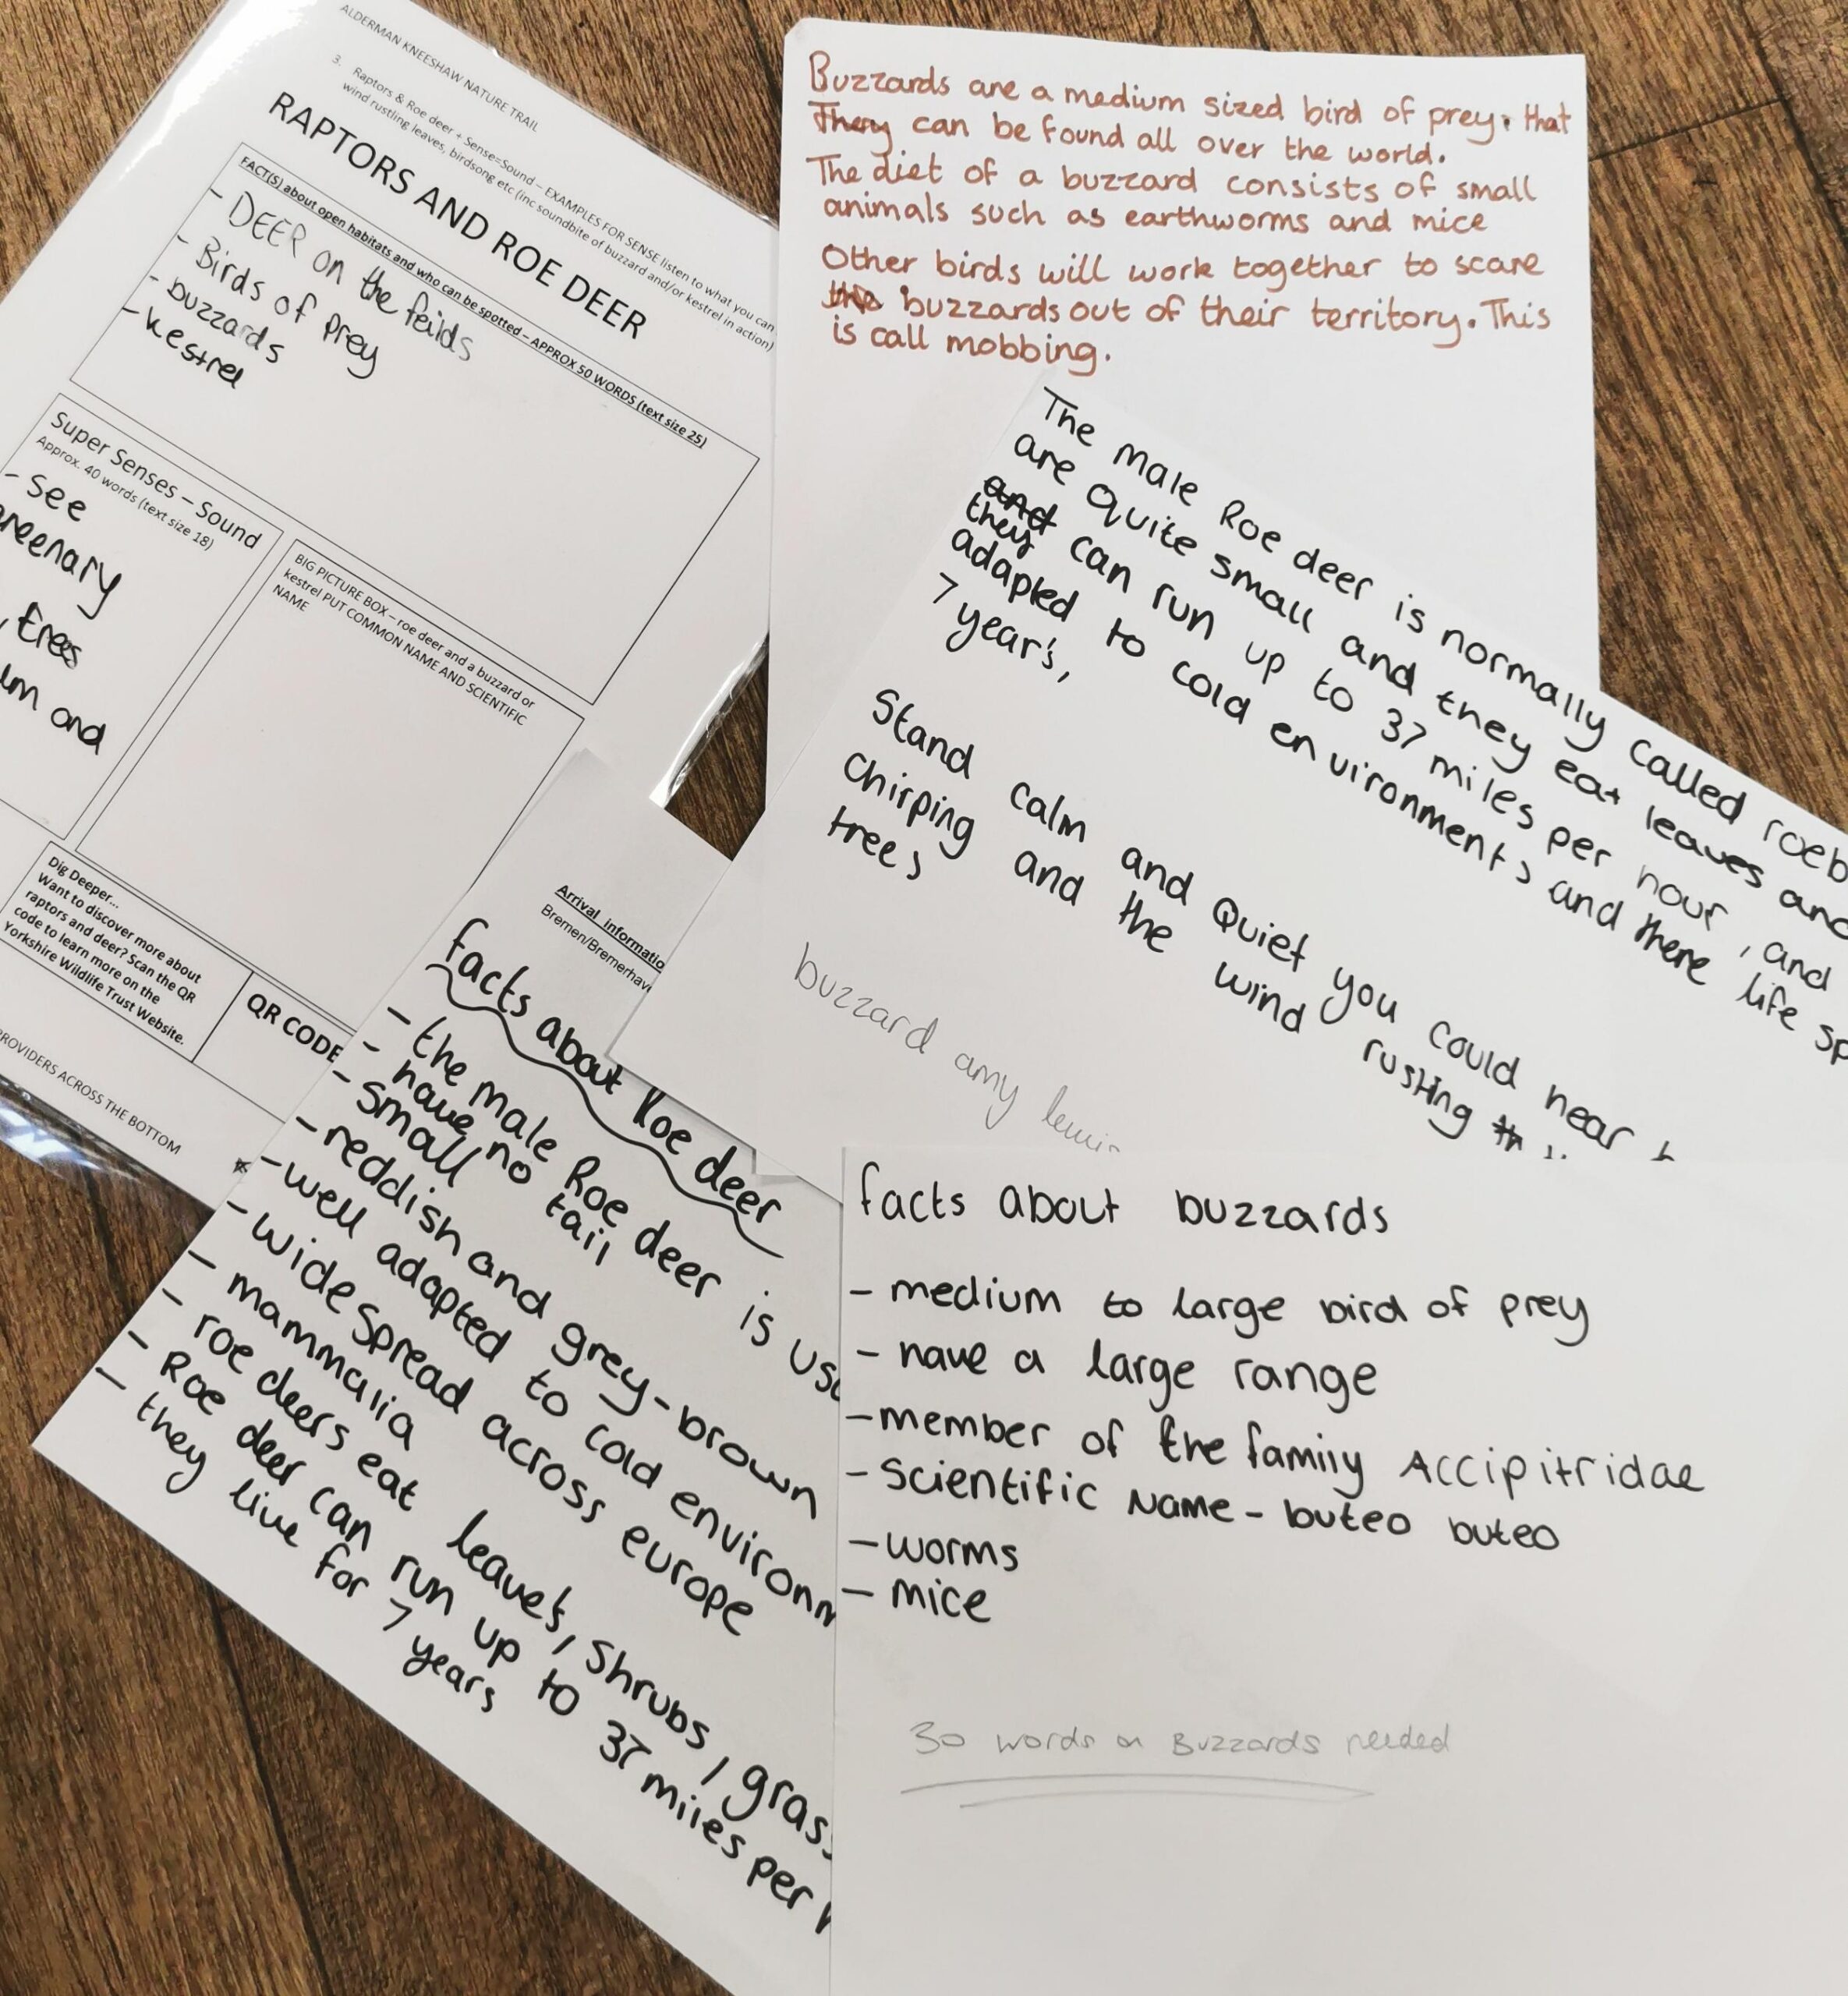 ALDERMAN KNEESHAW NATURE TRAIL
3. Raptors & Roe deer + Sense=Sound – EXAMPLES FOR SENSE listen to what you can
wind rustling leaves, birdsong etc (inc soundbite of buzzard and/or kestrel in action)
RAPTORS AND ROE DEER
FACT(S) about open habitats and who can be spotted – APPROX 50 WORDS (text size 25)
- DEER on the feilds
- Birds of prey
- buzzards
- kestrel
Super Senses – Sound
Approx. 40 words (text size 18)
- see
greenary
, trees
and
BIG PICTURE BOX – roe deer and a buzzard or
kestrel PUT COMMON NAME AND SCIENTIFIC
NAME
Dig Deeper...
Want to discover more about
raptors and deer? Scan the QR
code to learn more on the
Yorkshire Wildlife Trust Website.
QR CODE
PROVIDERS ACROSS THE BOTTOM
Buzzards are a medium sized bird of prey. that
They can be found all over the world.
The diet of a buzzard consists of small
animals such as earthworms and mice
Other birds will work together to scare
the buzzards out of their territory. This
is call mobbing.
The male Roe deer is normally called roeb
are Quite small and they eat leaves and
and they can run up to 37 miles per hour, and
adapted to cold environments and there life sp
7 year's,
Stand calm and Quiet you could hear
chirping and the wind rusting
trees
buzzard amy
Arrival informatio
Bremen/Bremerhav
facts about Roe deer
- the male Roe deer is us
- have no tail
- small
- reddish and grey-brown
- well adapted to cold environm
- wide spread across europe
- mammalia
- roe deers eat leave's, shrubs, grass
- Roe deer can run up to 37 miles per h
- they live for 7 years
facts about buzzards
- medium to large bird of prey
- have a large range
- member of the family Accipitridae
- scientific Name - buteo buteo
- worms
- mice
30 words on Buzzards needed